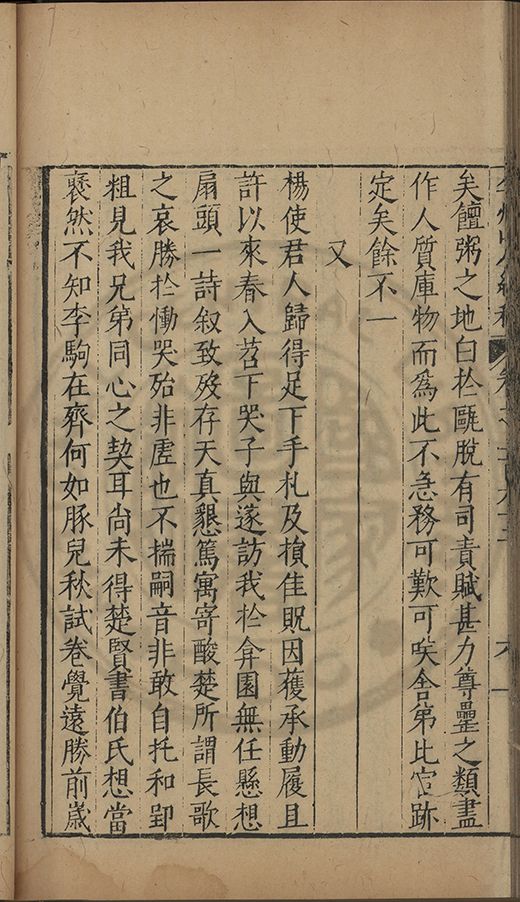 矣饘粥之地白於甌脫有司責賦甚力尊罍之類盡
作人質庫物而為此不急務可歎可唉舍第比官跡
定矣餘不一
又
楊使君人歸得足下手札及損佳貺因獲承動履且
許以來春入苕下哭子與遂訪我於弇園無任懸想
扇頭一詩叙致歿存天真懇篤寓寄酸楚所謂長歌
之哀勝於慟哭殆非虛也不揣嗣音非敢自托和郢
粗見我兄弟同心之契耳尚未得楚賢書伯氏想當
褎然不知李駒在齊何如豚兒秋試卷覺遠勝前歲